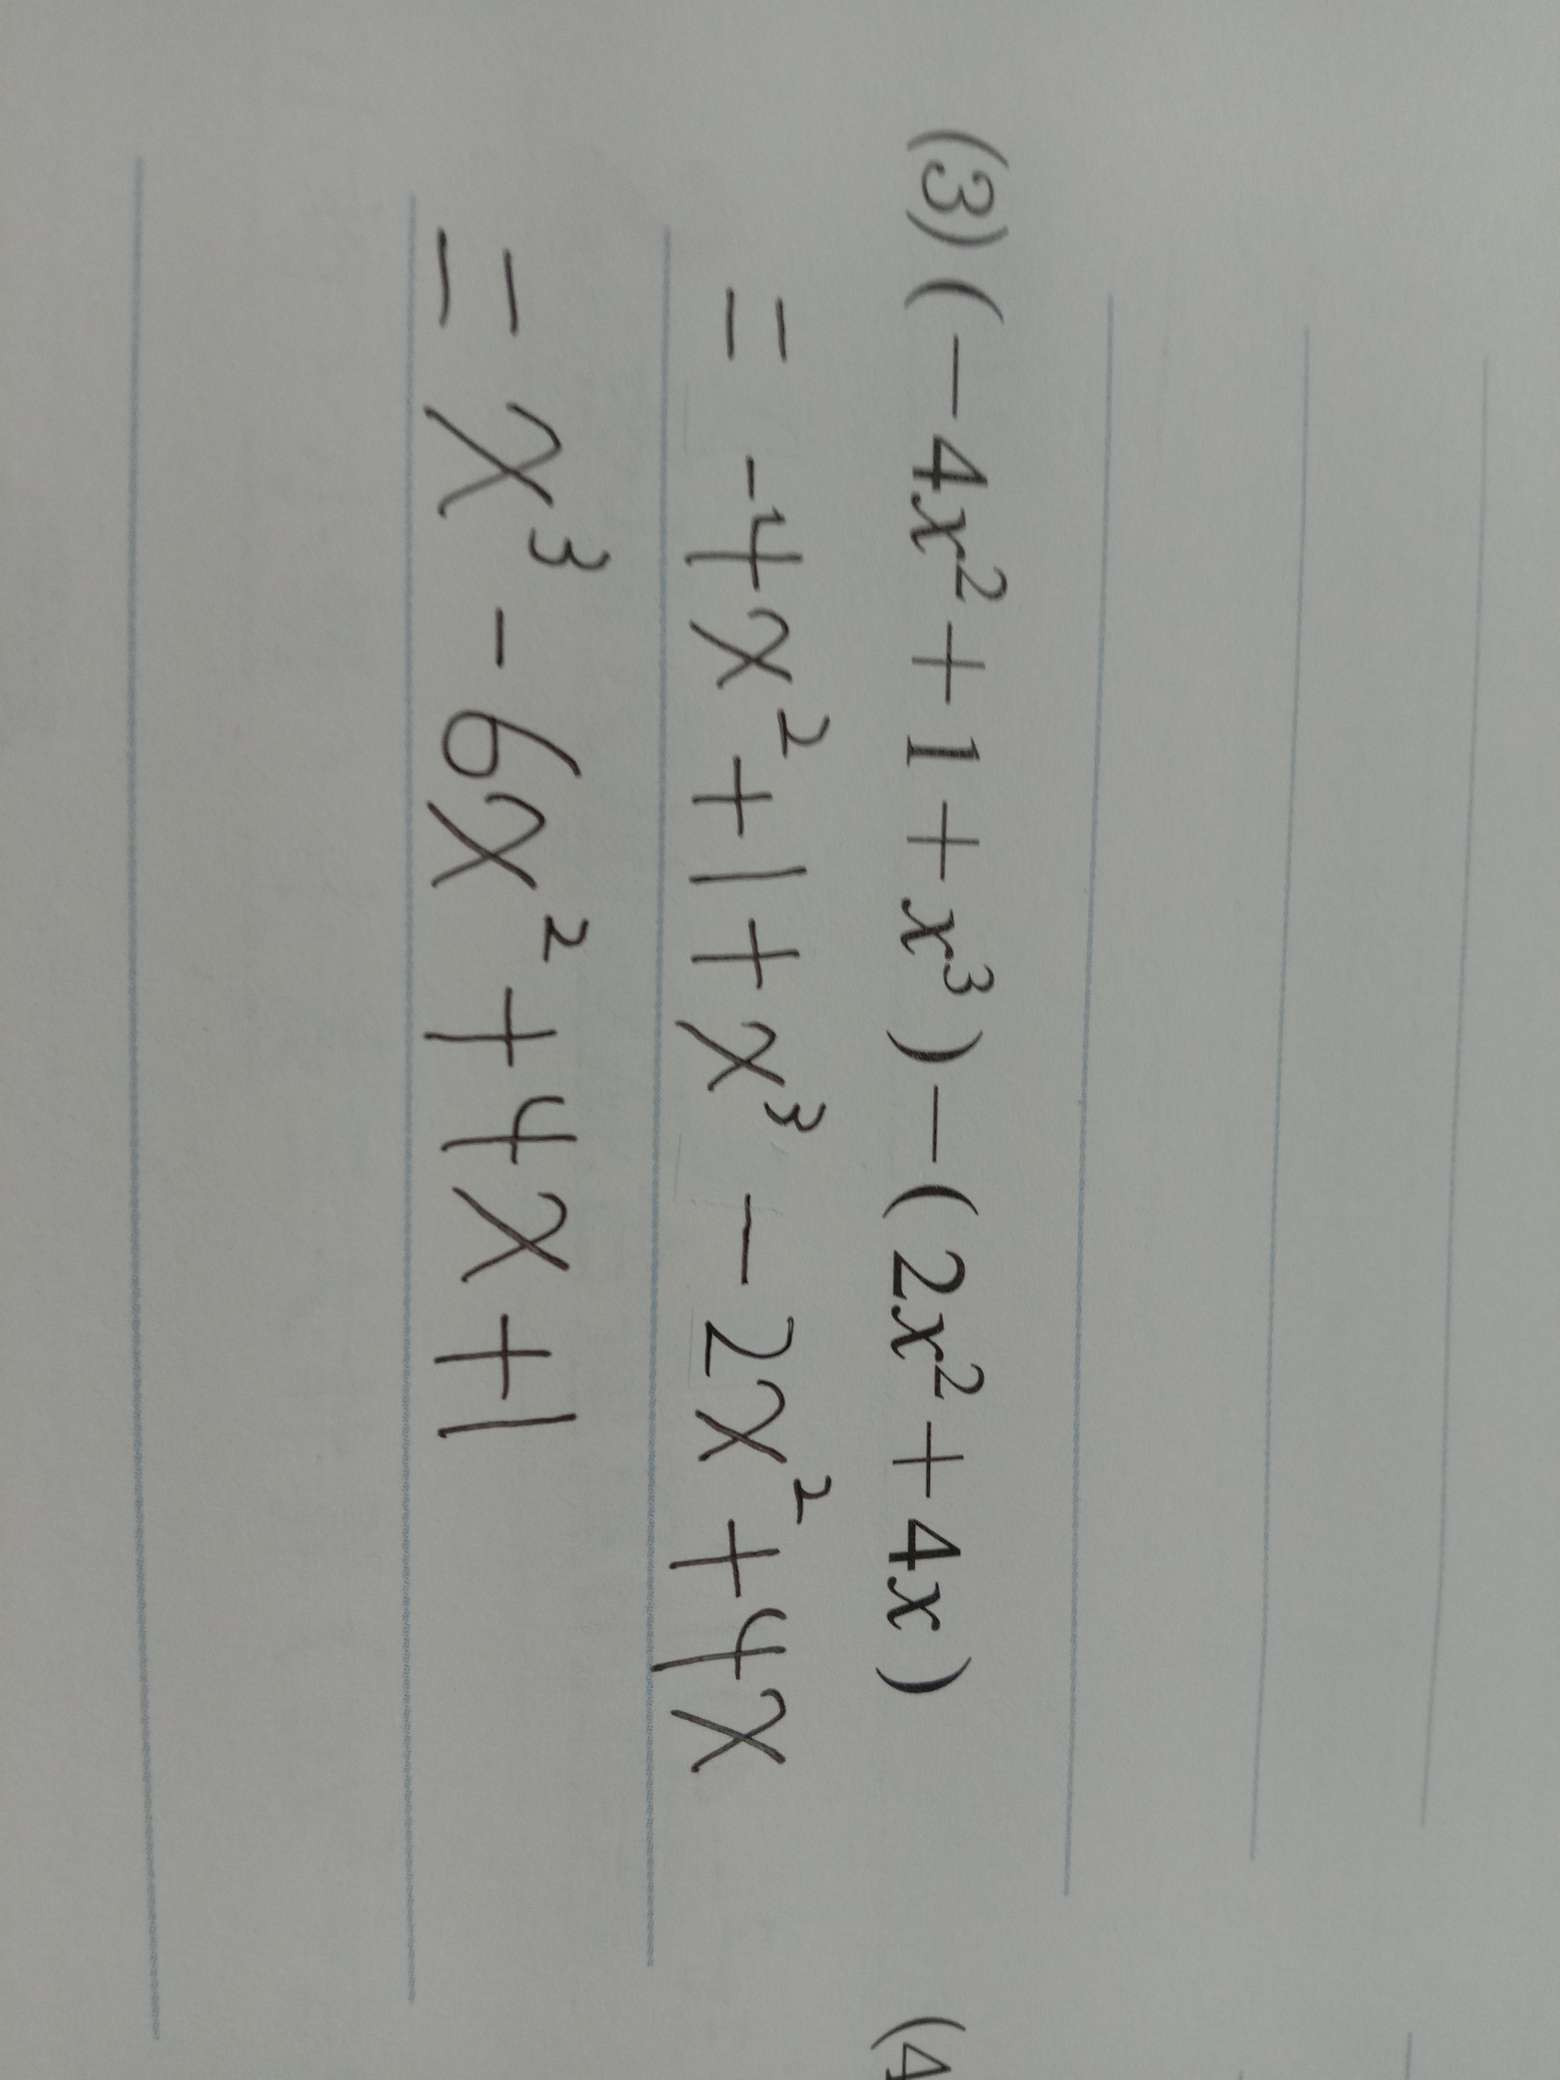 (3) (−4x²+1+x³)−(2x²+4x)
= -4x²+1+x³-2x²+4x
= x³-6x²+4x+1
(4